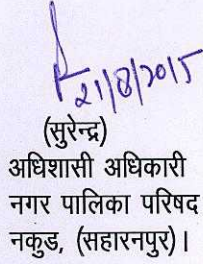 21/8/2015
(सुरेन्द्र)
अधिशासी अधिकारी
नगर पालिका परिषद
नकुड, (सहारनपुर)।